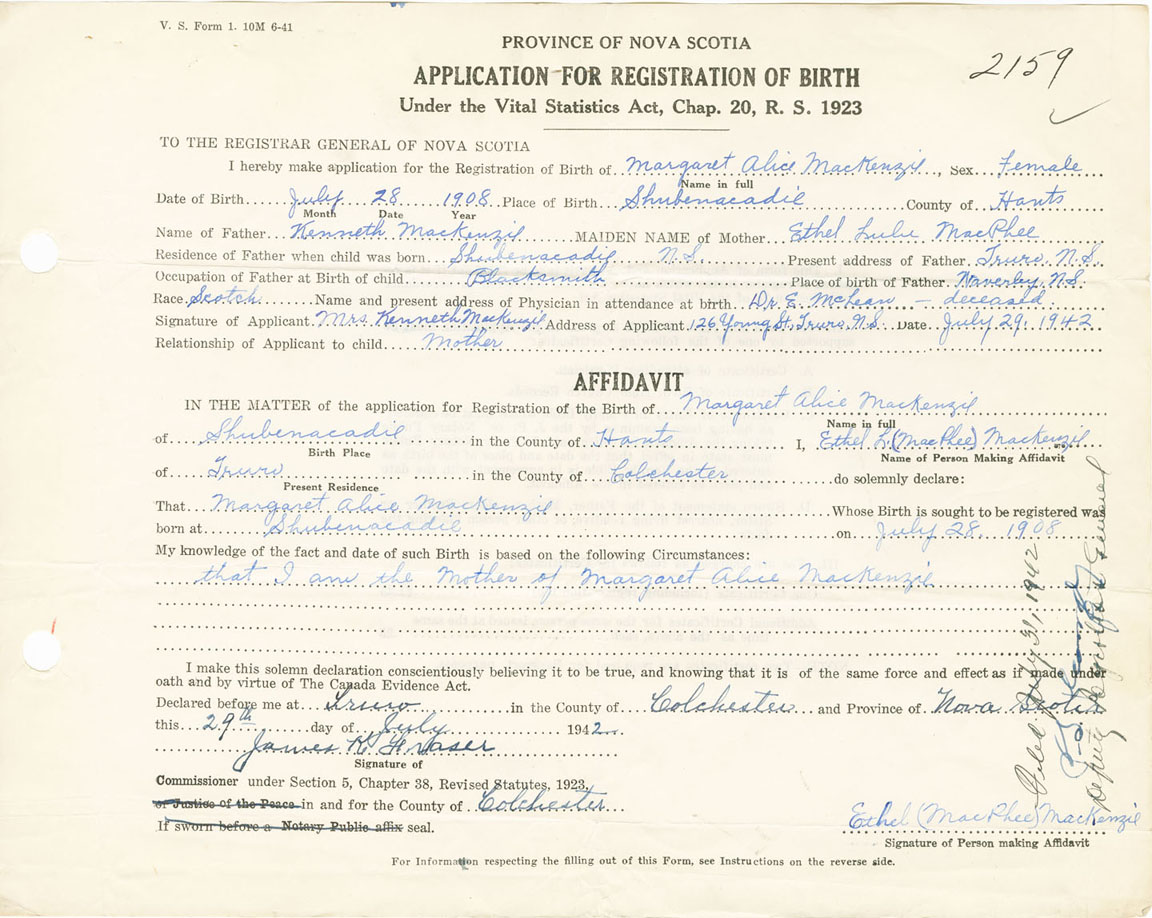 V. S. Form 1. 10M 6-41
PROVINCE OF NOVA SCOTIA
2159
APPLICATION FOR REGISTRATION OF BIRTH
Under the Vital Statistics Act, Chap. 20, R. S. 1923
TO THE REGISTRAR GENERAL OF NOVA SCOTIA
I hereby make application for the Registration of Birth of Margaret Alice MacKenzie, Sex Female
Name in full
Date of Birth July 28 1908 Place of Birth Shubenacadie County of Hants
Month Date Year
Name of Father Kenneth MacKenzie MAIDEN NAME of Mother Ethel Lulu MacPhee
Residence of Father when child was born Shubenacadie N.S. Present address of Father Truro N.S.
Occupation of Father at Birth of child Blacksmith Place of birth of Father Waverley N.S.
Race Scotch Name and present address of Physician in attendance at birth Dr. E. McLean – deceased
Signature of Applicant Mrs. Kenneth MacKenzie Address of Applicant 126 Young St. Truro. N.S. Date July 29, 1942
Relationship of Applicant to child Mother
AFFIDAVIT
IN THE MATTER of the application for Registration of the Birth of Margaret Alice MacKenzie
Name in full
of Shubenacadie in the County of Hants I, Ethel L. (MacPhee) MacKenzie
Birth Place Name of Person Making Affidavit
of Truro in the County of Colchester do solemnly declare:
Present Residence
That Margaret Alice MacKenzie Whose Birth is sought to be registered was
born at Shubenacadie on July 28, 1908
My knowledge of the fact and date of such Birth is based on the following Circumstances:
that I am the Mother of Margaret Alice MacKenzie
I make this solemn declaration conscientiously believing it to be true, and knowing that it is of the same force and effect as if made under
oath and by virtue of The Canada Evidence Act.
Declared before me at Truro in the County of Colchester and Province of Nova Scotia
this 29th day of July 1942
James K Fraser
Signature of
Commissioner under Section 5, Chapter 38, Revised Statutes, 1923,
or Justice of the Peace in and for the County of Colchester
If sworn before a Notary Public affix seal.
Ethel (MacPhee) MacKenzie
Signature of Person making Affidavit
For Information respecting the filling out of this Form, see Instructions on the reverse side.
Filed July 31, 1942
Deputy Registrar General